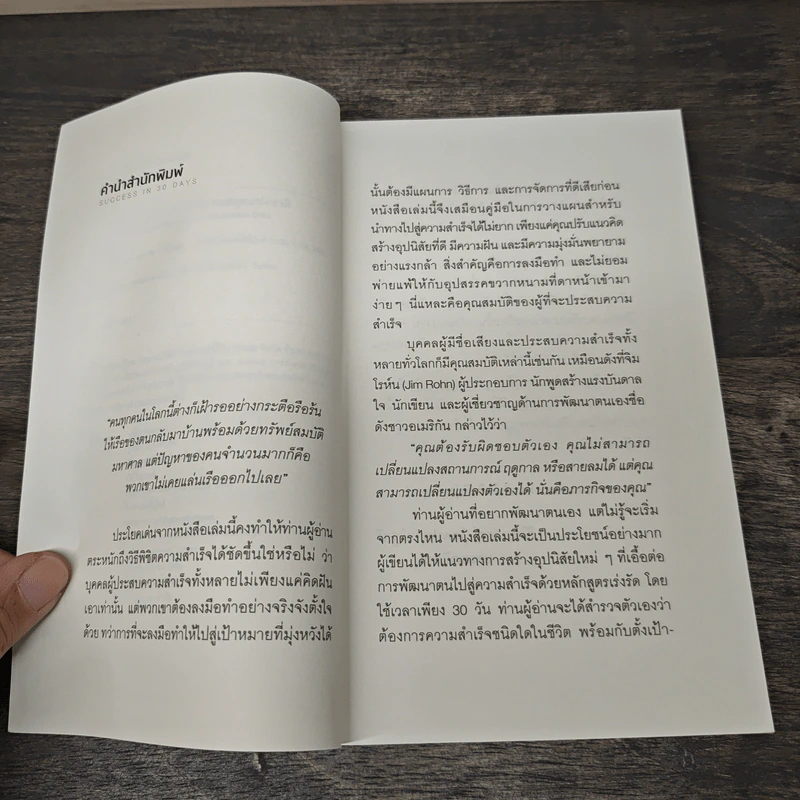 คำนำสำนักพิมพ์
SUCCESS IN 30 DAYS
"คนทุกคนในโลกนี้ต่างก็เฝ้ารออย่างกระตือรือร้น
ให้เรือของตนกลับมาบ้านพร้อมด้วยทรัพย์สมบัติ
มหาศาล แต่ปัญหาของคนจำนวนมากก็คือ
พวกเขาไม่เคยแล่นเรือออกไปเลย"
ประโยคเด่นจากหนังสือเล่มนี้คงทำให้ท่านผู้อ่าน
ตระหนักถึงวิธีพิชิตความสำเร็จได้ชัดขึ้นใช่หรือไม่ ว่า
บุคคลผู้ประสบความสำเร็จทั้งหลายไม่เพียงแค่คิดฝัน
เอาเท่านั้น แต่พวกเขาต้องลงมือทำอย่างจริงจังตั้งใจ
ด้วย ทว่าการที่จะลงมือทำให้ไปสู่เป้าหมายที่มุ่งหวังได้
นั้นต้องมีแผนการ วิธีการ และการจัดการที่ดีเสียก่อน
หนังสือเล่มนี้จึงเสมือนคู่มือในการวางแผนสำหรับ
นำทางไปสู่ความสำเร็จได้ไม่ยาก เพียงแค่คุณปรับแนวคิด
สร้างอุปนิสัยที่ดี มีความฝัน และมีความมุ่งมั่นพยายาม
อย่างแรงกล้า สิ่งสำคัญคือการลงมือทำ และไม่ยอม
พ่ายแพ้ให้กับอุปสรรคขวากหนามที่ดาหน้าเข้ามา
ง่ายๆ นี่แหละคือคุณสมบัติของผู้ที่จะประสบความ
สำเร็จ
บุคคลผู้มีชื่อเสียงและประสบความสำเร็จทั้ง
หลายทั่วโลกก็มีคุณสมบัติเหล่านี้เช่นกัน เหมือนดังที่จิม
โรห์น (Jim Rohn) ผู้ประกอบการ นักพูดสร้างแรงบันดาล
ใจ นักเขียน และผู้เชี่ยวชาญด้านการพัฒนาตนเองชื่อ
ดังชาวอเมริกัน กล่าวไว้ว่า
"คุณต้องรับผิดชอบตัวเอง คุณไม่สามารถ
เปลี่ยนแปลงสถานการณ์ ฤดูกาล หรือสายลมได้ แต่คุณ
สามารถเปลี่ยนแปลงตัวเองได้ นั่นคือภารกิจของคุณ"
ท่านผู้อ่านที่อยากพัฒนาตนเอง แต่ไม่รู้จะเริ่ม
จากตรงไหน หนังสือเล่มนี้จะเป็นประโยชน์อย่างมาก
ผู้เขียนได้ให้แนวทางการสร้างอุปนิสัยใหม่ ๆ ที่เอื้อต่อ
การพัฒนาตนไปสู่ความสำเร็จด้วยหลักสูตรเร่งรัด โดย
ใช้เวลาเพียง 30 วัน ท่านผู้อ่านจะได้สำรวจตัวเองว่า
ต้องการความสำเร็จชนิดใดในชีวิต พร้อมกับตั้งเป้า-